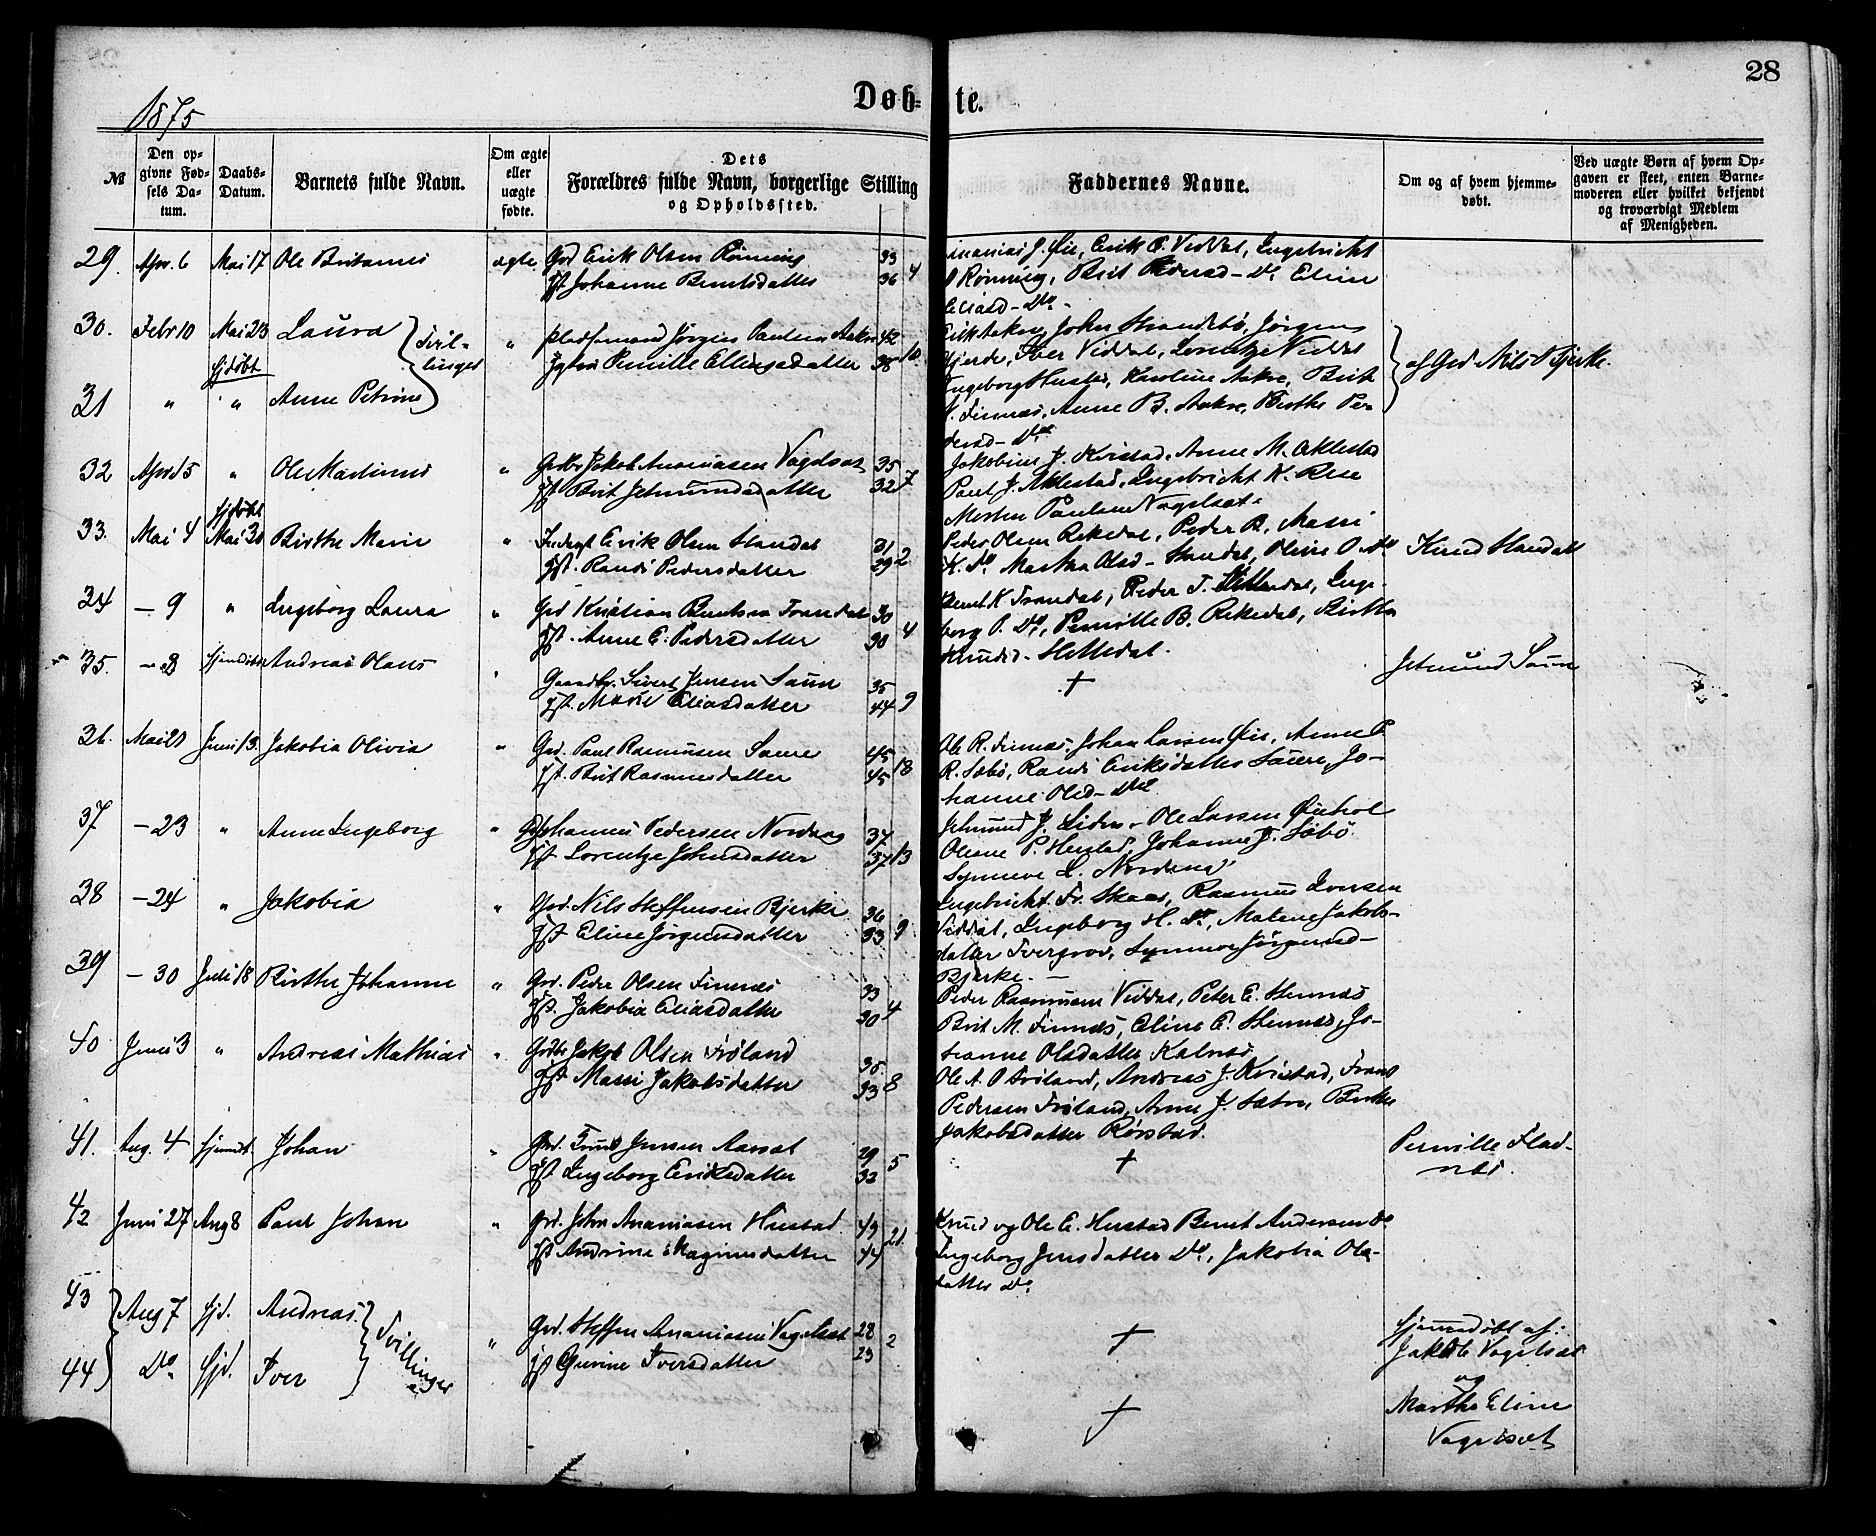 28
1875
Døb- te.
№
Den op-
givne Fød-
sels Da-
tum.
Daabs-
Datum.
Barnets fulde Navn.
Om ægte
eller
uægte
fødte.
Dets
Forældres fulde Navn, borgerlige Stilling
og Opholdssted.
Faddernes Navne.
Om og af hvem hjemme-
døbt.
Ved uægte Børn af hvem Op-
gaven er skeet, enten Barne-
moderen eller hvilket bekjendt
og troværdigt Medlem
af Menigheden.
29. Apr. 6 Mai 17 Ole Britanus ægte Grd Erik Olsen Rönning 33
Hst Johanne Berntsdatter 36 4
Erik E. Viddal, Ingebricht
Rönning, Brit Pedersd - Do. Eline
Eliasd - Do -
30. Febr 10 Mai 23 Laura Tvil- " pladsmand Jörgen Paulsen Aakre 42
hjdöbt linger Pernille Ellingsdatter 38 10
31 " " Anne Petrine
John Strandebö, Jörgen
Gjerde, Iver Viddal, Lorentze Viddal
Ingeborg Hustad, Karoline Aakre, Brit
Finnæs, Anne B. Aakre, Birthe Pe-
dersd - Do
af Grd Nils S Bjerke.
32 April 5 " Ole Martinus " Grdbr Jakob Ananiasen Vagelsat 35
Hst Brit Jetmundsdatter 32 7
Jakobine J. Kvistad, Anne M. Aklestad
Paul J. Aklestad, Ingebricht K. Rise
Morten Paulsen Vagelsat.
33. Mai 4 hjdöbt Mai 30 Birthe Marie " Erik Olsen Standal 31
Hst. Randi Pedersdatter 29 2
Peder Olsen Rekedal, Peder B. Massi
K. Do Martha Olsd - Standal, Oline O Do
Knud Standal
34 - 9 " Ingeborg Laura " Grd Kristian Berntsen Trandal 30
Hst. Anne E. Pedersdatter 30 4
Bernt K Trandal, Peder T. Inge-
borg P. Do, Pernille B. Rekedal, Birthe
Knudsd - Hettedal.
35. - 8 hjemdöbt Andreas Olaus " Gaardbr. Sivert Jensen Saure 35
Hst. Marie Eliasdatter 44 9
+
Jetmund Saure
36. Mai 21 Juni 13. Jakobia Olivia " Grd. Paul Rasmusen Saure 45
Hst. Brit Rasmusdatter 45 18
Ole R. Finnæs, Johan Larsen Öie, Anne P
R. Sæbö, Randi Eriksdatter Saure, Jo-
hanne Olsd - Do
37 - 23 " Anne Ingeborg " Grd Johannes Pedersen Nordang 37
Hst Lorentze Johnsdatter 37 13
Jetmund J. Ole Larsen
Olesne P. Hustad, Johanne J. Sæbö
Synneve L. Nordang
38 - 24 " Jakobia " Grd. Nils Steffensen Bjerke 36
Hst Eline Jörgensdatter 33 9
Ingebricht Fr. Skaar, Rasmus Iversen
Viddal, Ingeborg H. Do, Malene Jakobs-
datter Tvergrov, Synneve Jörgensd -
Bjerke. -
39 - 30 Juli 18 Birthe Johanne " Grd. Peder Olsen Finnæs 33
Hst. Jakobia Eliasdatter 30 4
Peder Rasmusen Viddal, Peter E. Stennæs
Brit M. Finnæs, Eline E. Stennæs, Jo-
hanne Olsdatter Kalnæs.
40 Juni 3 " Andreas Mathias " Grdbr Jakob Olsen Fröland 35
Hst Massi Jakobsdatter 33 8
Ole A. O Fröland, Andreas J. Kvistad, Frans
Pedersen Fröland, Anne J. Sætre, Birthe
Jakobsdatter Rörstad.
41. Aug. 4 hjemdt. Johan " Grd. Knud Jensen Aarsæt 29
Hst Ingeborg Eriksdatter 32 5
+
Pernille Flad-
næs.
42 Juni 27 Aug 8 Paul Johan " Grd. John Ananiasen Hustad 49
Hst Andrine Magnusdatter 44 21.
Knud og Ole E. Hustad Bernt Andersen Do
Ingeborg Jensdatter Do, Jakobia Ols-
datter Do
43 Aug 7 hjd. Andreas. Tvillinger " Grd. Steffen Ananiasen Vagelsat 28
44 Do hjd. Iver Hst Gurine Iversdatter 23 2
+
+
hjemmedöbt af:
Jakob Vagelsat
og
Marthe Eline
Vagelsæt